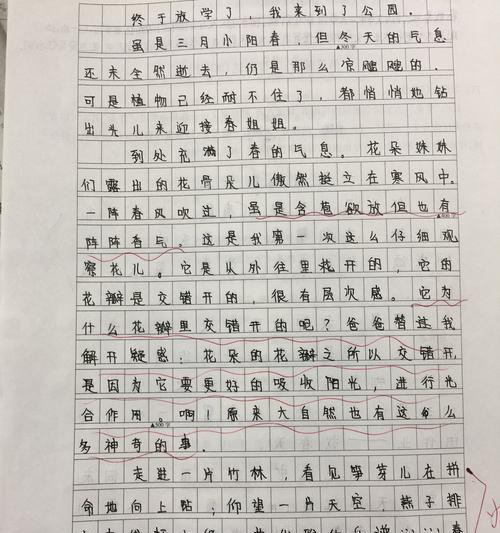 终于放学了，我来到了公园。
虽是三月小阳春，但冬天的气息
▲300字
还未全然逝去，仍是那么凉飕飕的．
可是植物已经耐不住了，都悄悄地钻
出头儿来迎接春姐姐。
到处充满了春的气息。花朵妹妹
们露出的花骨朵儿傲然挺立在寒风中。
一阵春风吹过，虽是含苞欲放但也有
阵阵香气。这是我第一次这么仔细观
察花儿。它是从外往里花开的，它的
花瓣是交错开的，很有层次感。它为
什么花瓣里交错开的呢？爸爸替过我
解开疑惑：花朵的花瓣之所以交错开，
是因为它要更好的吸收阳光，进行光
合作用。啊！原来大自然也有这么
多神奇的事．
走进一片竹林，看见笋芽儿在拼
命地向上钻；仰望一片天空，燕子排